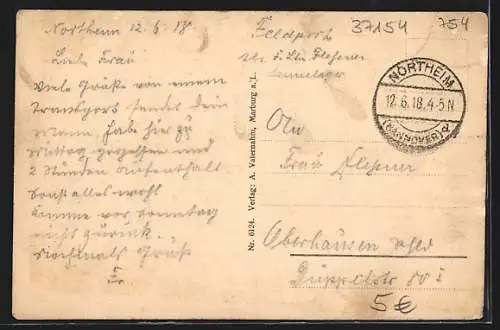 Northeim 12.6.18
Liebe Frau
Viele Grüße von einem
Transport sendet dein
Mann. habe hier zu
Mittag gegessen und
2 Stunden Aufenthalt
sonst alles wohl
komme vor Sonntag
nicht zurück.
Nochmals Gruß
Nr. 6124. Verlag: A. Vaternahm, Marburg a/L.
Feldpost
37154
754
NORTHEIM
12.6.18.4-5N
(HANNOVER)
An
Frau
Oberhausen Rhld
Düppelstr 80
5€